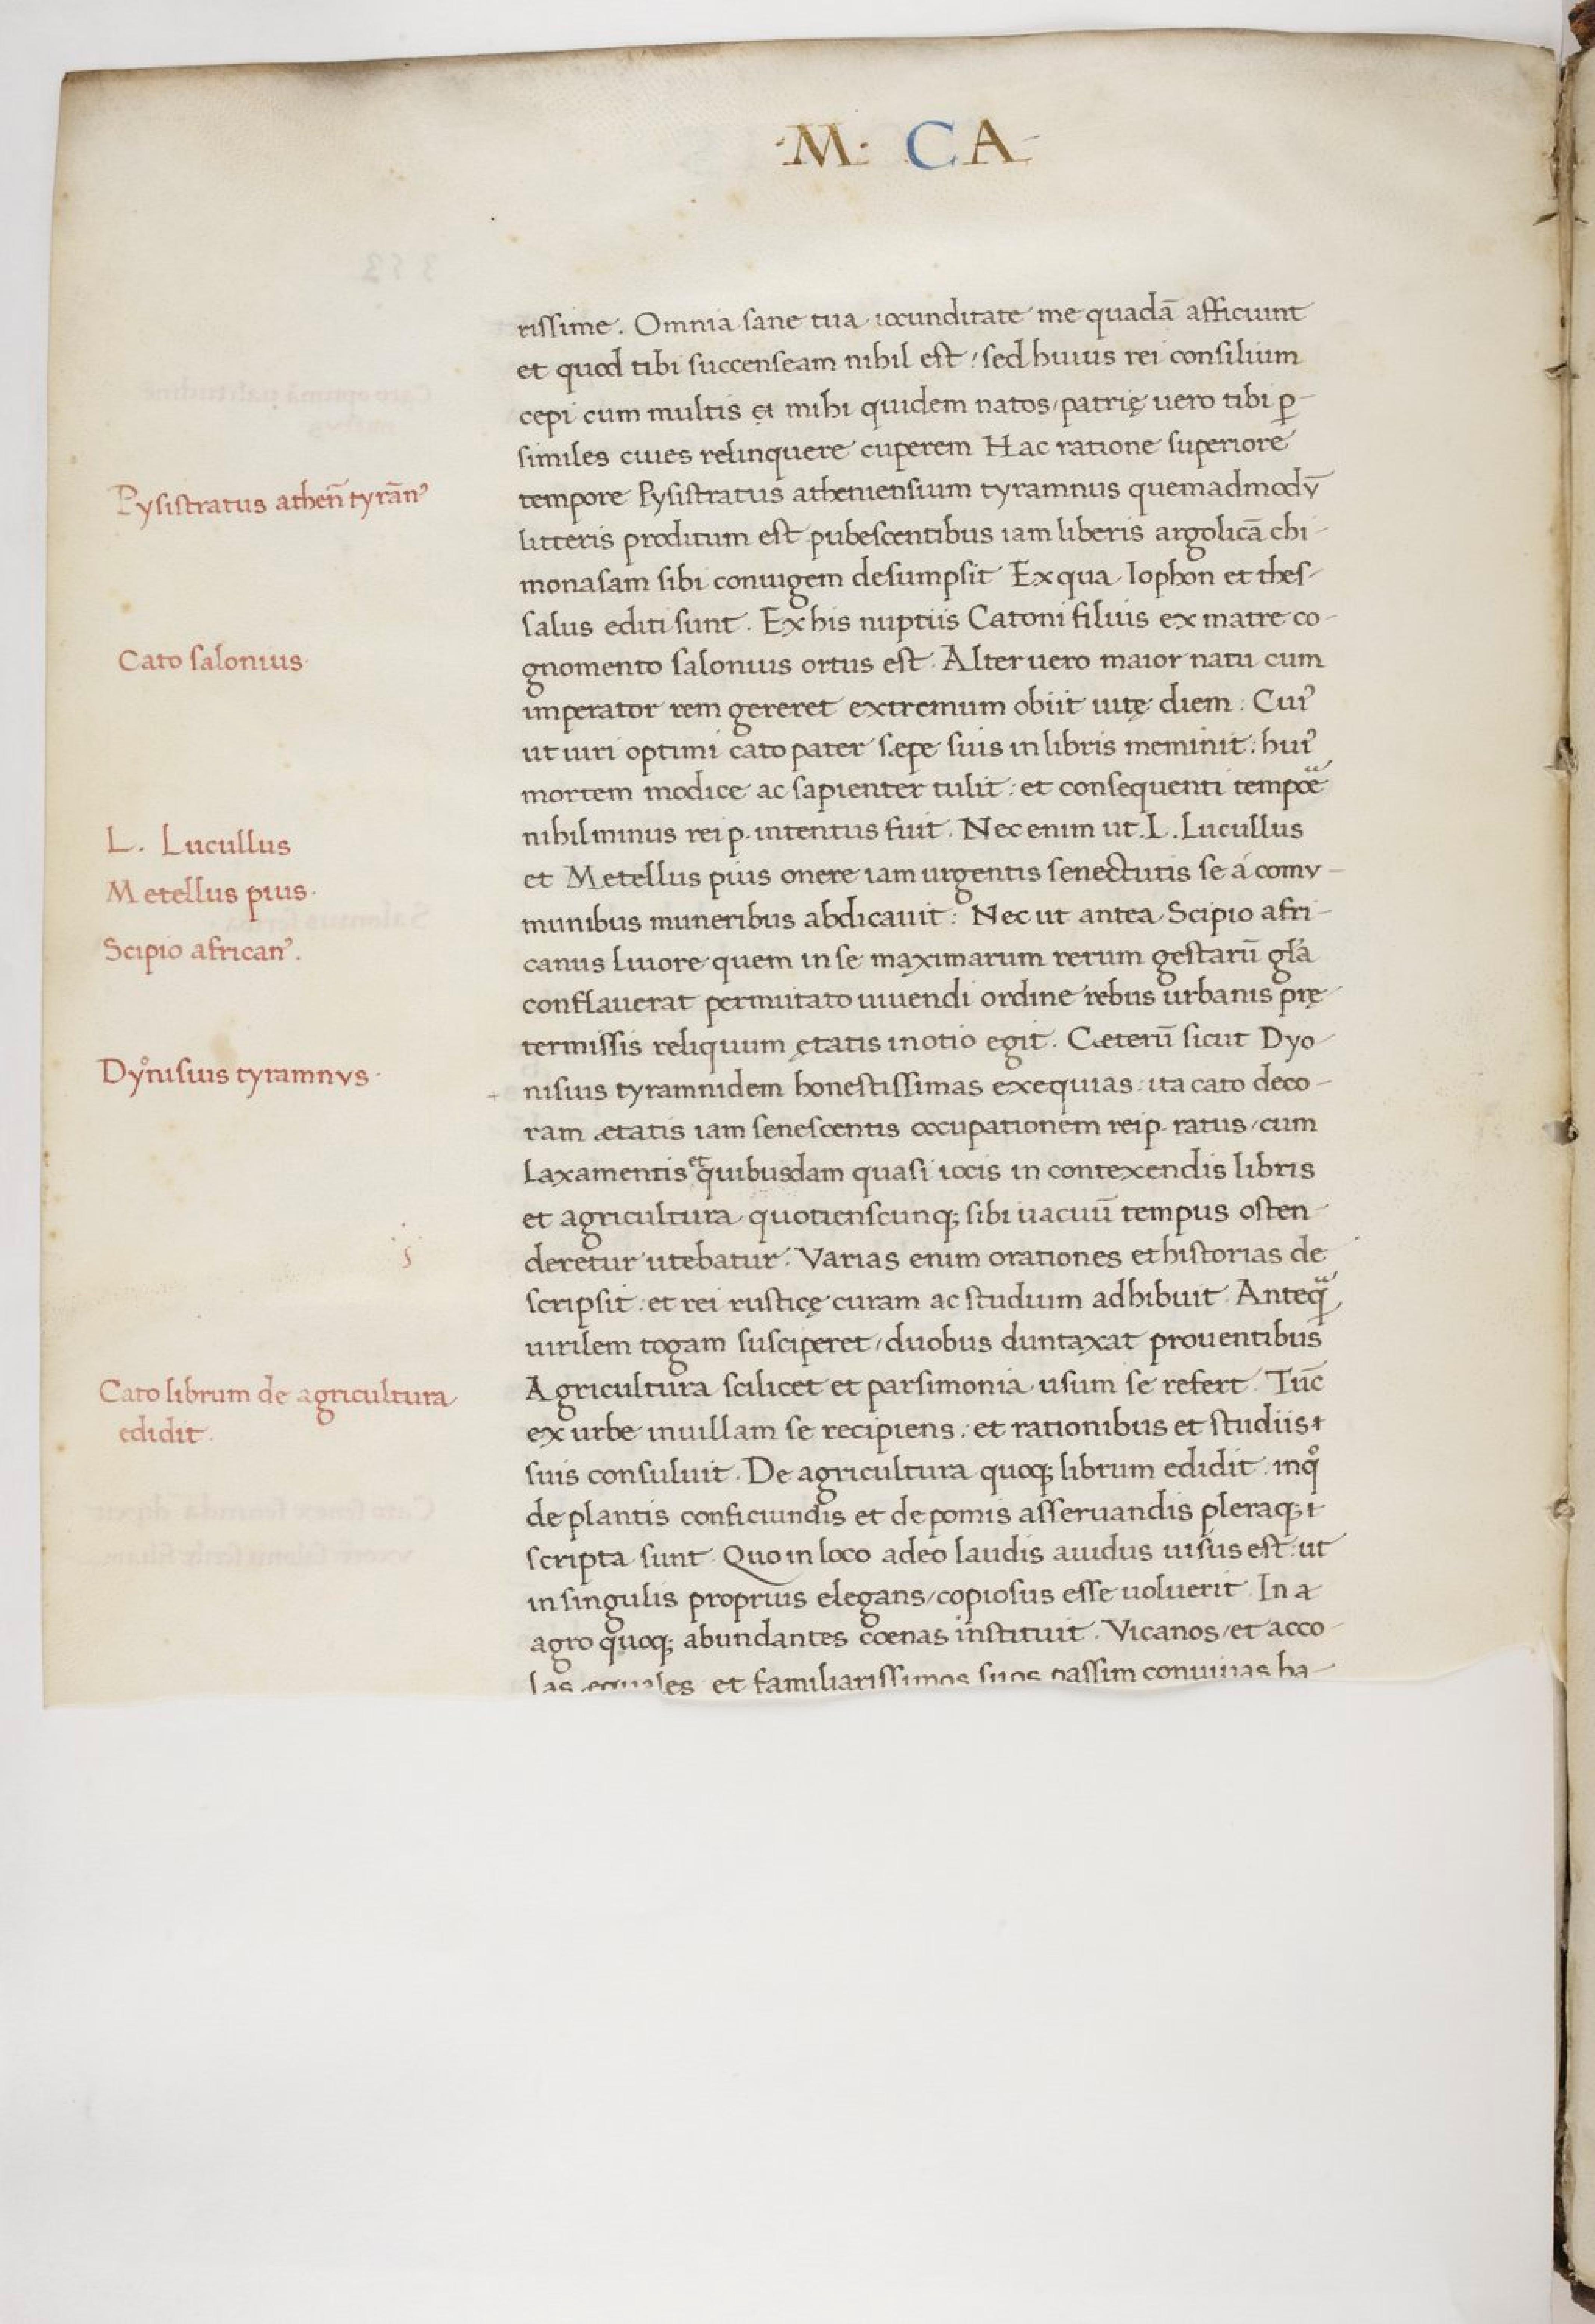 ·M· CA
rissime. Omnia sane tua iocunditate me quadā afficiunt
et quod tibi succenseam nihil est: sed huius rei consilium
cepi cum multis et mihi quidem natos/patrię uero tibi p̱-
similes ciues relinquere cuperem Hac ratione superiore
Pysistratus atheñ tyrānꝰ
tempore Pysistratus atheniensium tyramnus quemadmodv̄
litteris proditum est pubescentibus iam liberis argolicā chi-
monasam sibi coniugem desumpsit Ex qua Iophon et thes-
salus editi sunt. Ex his nuptiis Catoni filius ex matre co-
Cato salonius
gnomento salonius ortus est. Alter uero maior natu cum
imperator rem gereret extremum obiit uitę diem: Cuiꝰ
ut uiri optimi cato pater sæpe suis in libris meminit: huiꝰ
mortem modice ac sapienter tulit: et consequenti tempoe
L. Lucullus
nihil minus rei p. intentus fuit. Nec enim ut .L. Lucullus
Metellus pius.
et Metellus pius onere iam urgentis senectutis se á comv-
munibus muneribus abdicauit: Nec ut antea Scipio afri-
Scipio africanꝰ.
canus liuore quem in se maximarum rerum gestarū gła
conflauerat permutato uiuendi ordine rebus urbanis prę-
termissis reliquum ętatis in otio egit. Cæterū sicut Dyo-
Dyᵒnisius tyramnvs.
nisius tyramnidem honestissimas exequias: ita cato deco-
ram ætatis iam senescentis occupationem rei p. ratus/cum
laxamentis et quibusdam quasi iocis in contexendis libris
et agricultura quotienscunq; sibi uacuū tempus osten-
deretur utebatur: Varias enim orationes et historias de
scripsit: et rei rusticę curam ac studium adhibuit. Anteq̄
uirilem togam susciperet/duobus duntaxat prouentibus
Cato librum de agricultura
edidit.
Agricultura scilicet et parsimonia usum se refert. Tūc
ex urbe in uillam se recipiens: et rationibus et studiis
suis consuluit. De agricultura quoq; librum edidit: inqͦ
de plantis conficiundis et de pomis asseruandis pleraq;
scripta sunt. Quo in loco adeo laudis auidus uisus est: ut
in singulis proprius elegans/copiosus esse uoluerit. In a
agro quoq; abundantes coenas instituit. Vicanos/et acco-
las equales et familiarissimos suos passim conuiuas ha-